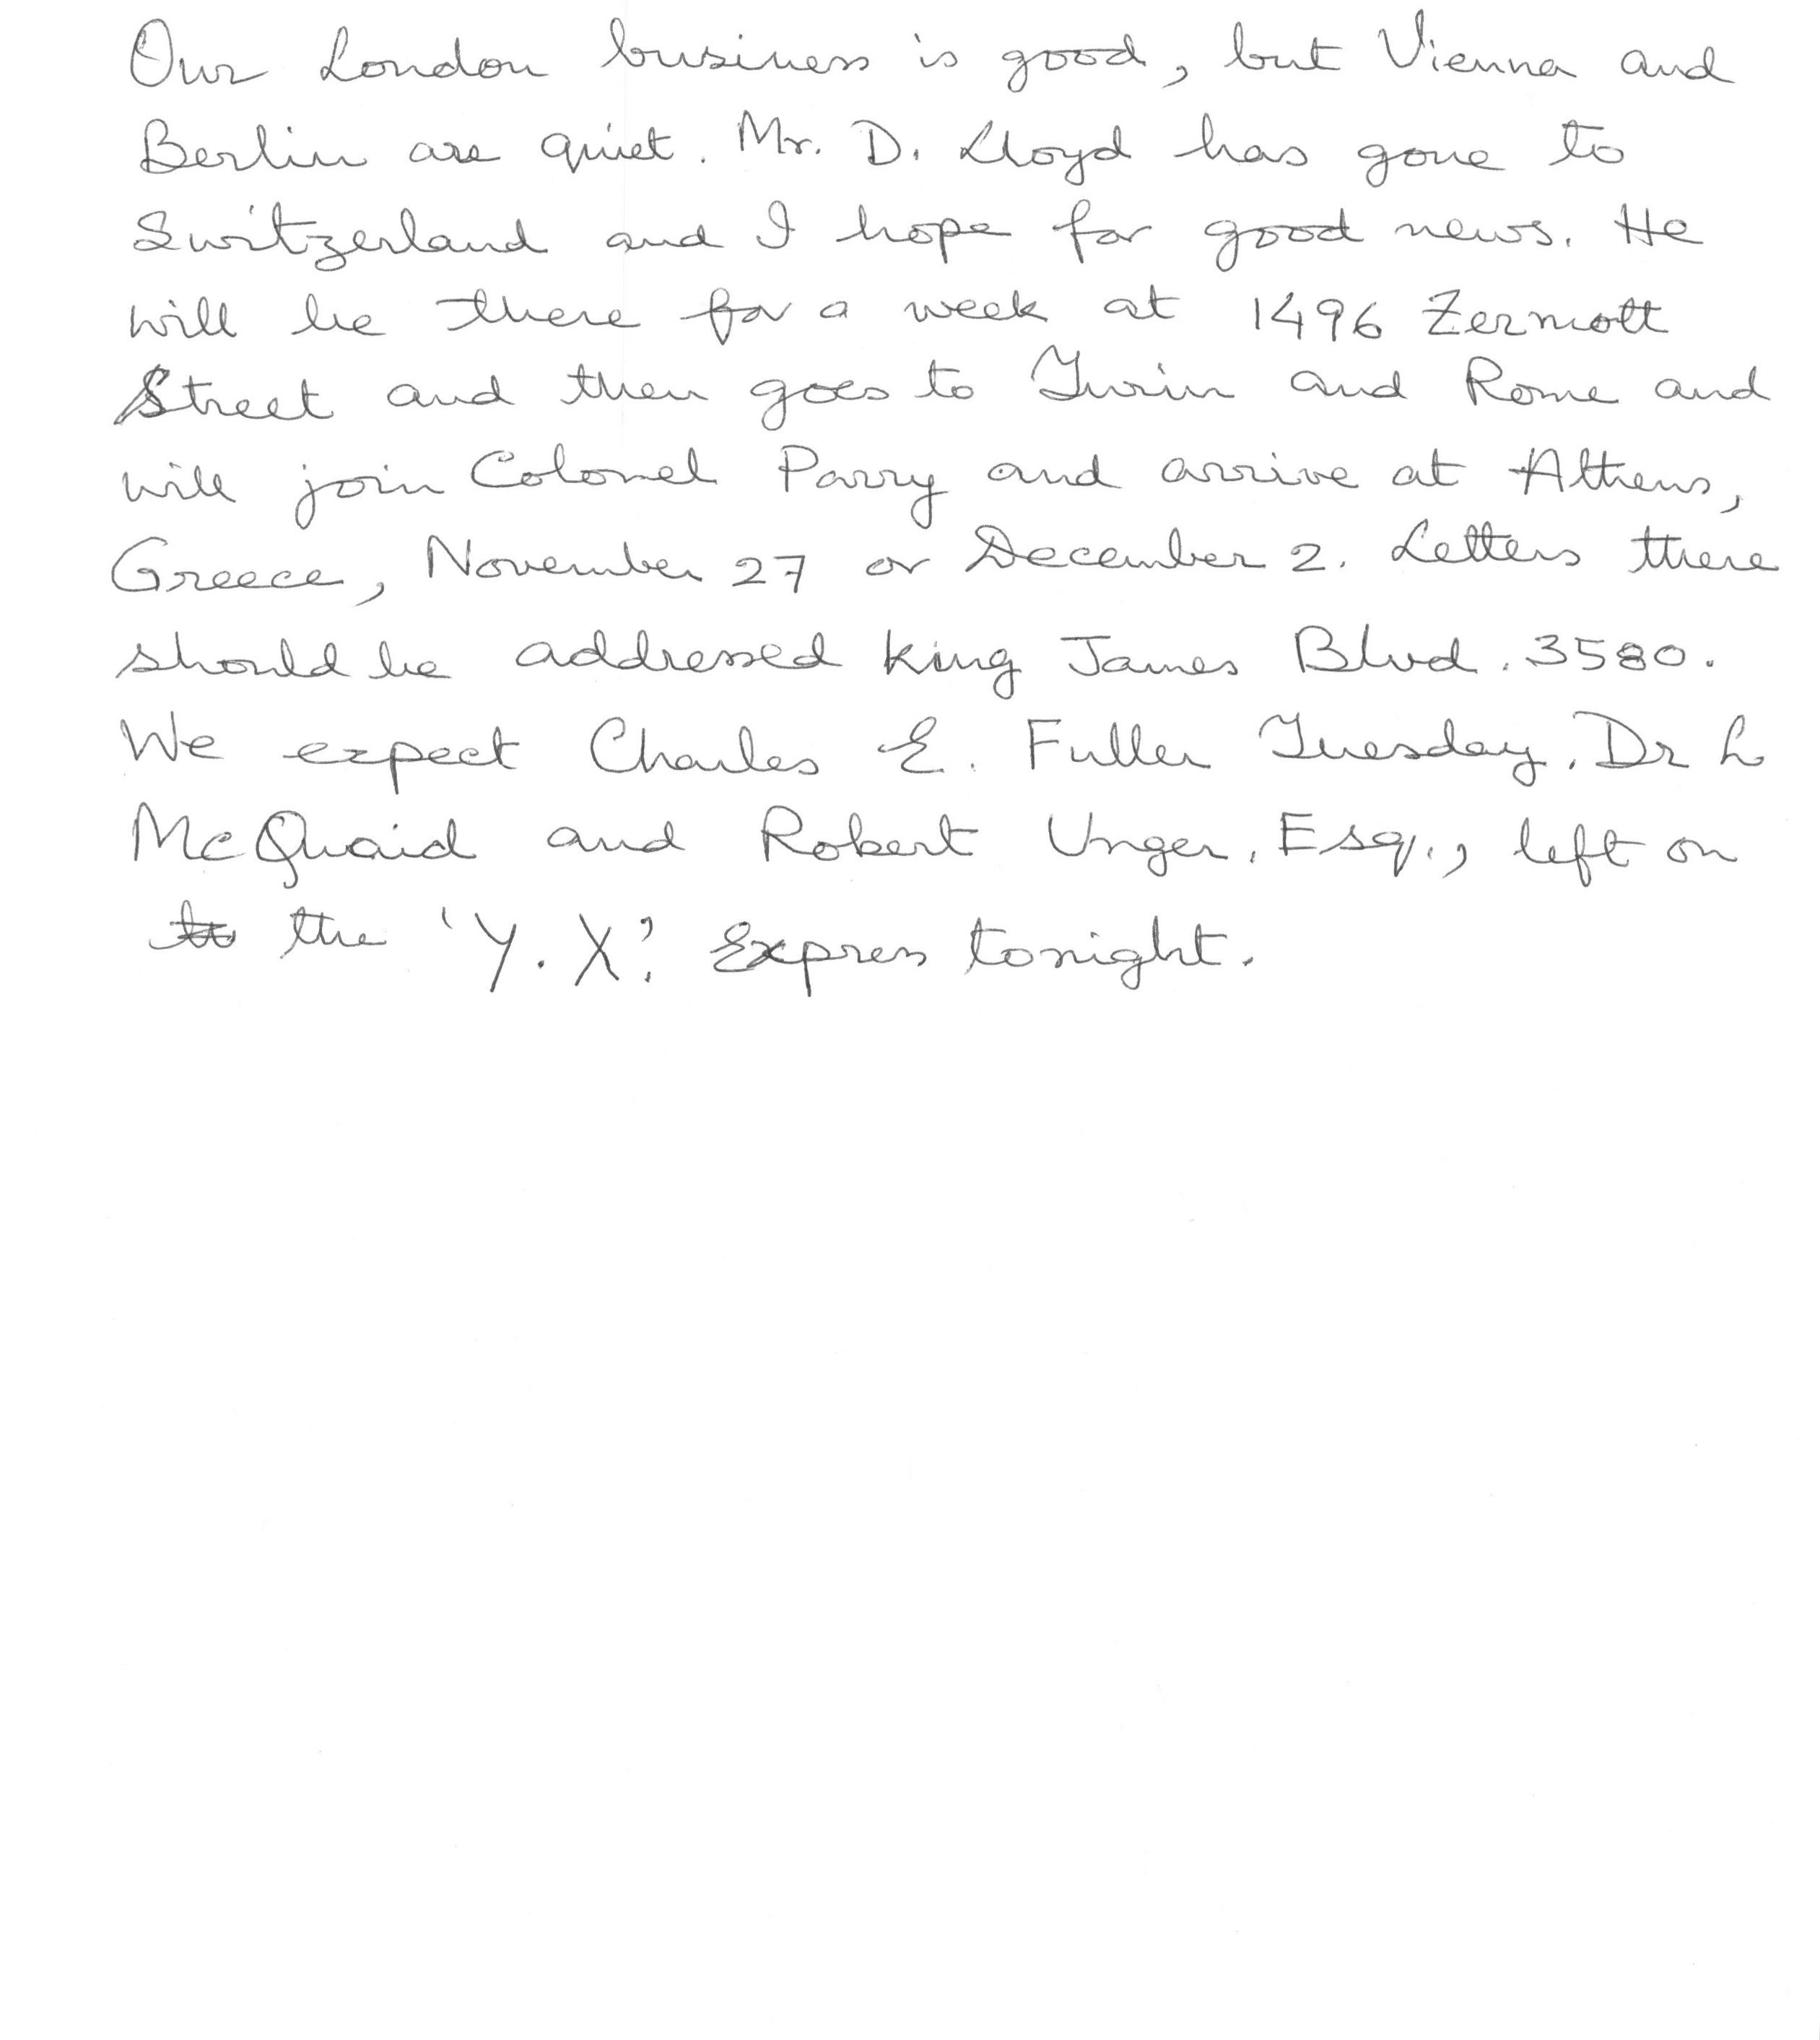 Our London business is good, but Vienna and
Berlin are quiet. Mr. D. Lloyd has gone to
Switzerland and I hope for good news. He
will be there for a week at 1496 Zermott
Street and then goes to Turin and Rome and
will join Colonel Parry and arrive at Athens,
Greece, November 27 or December 2. Letters there
should be addressed King James Blvd. 3580.
We expect Charles E. Fuller Tuesday. Dr L
McQuaid and Robert Unger, Esq., left on
the 'Y. X.' Express tonight.